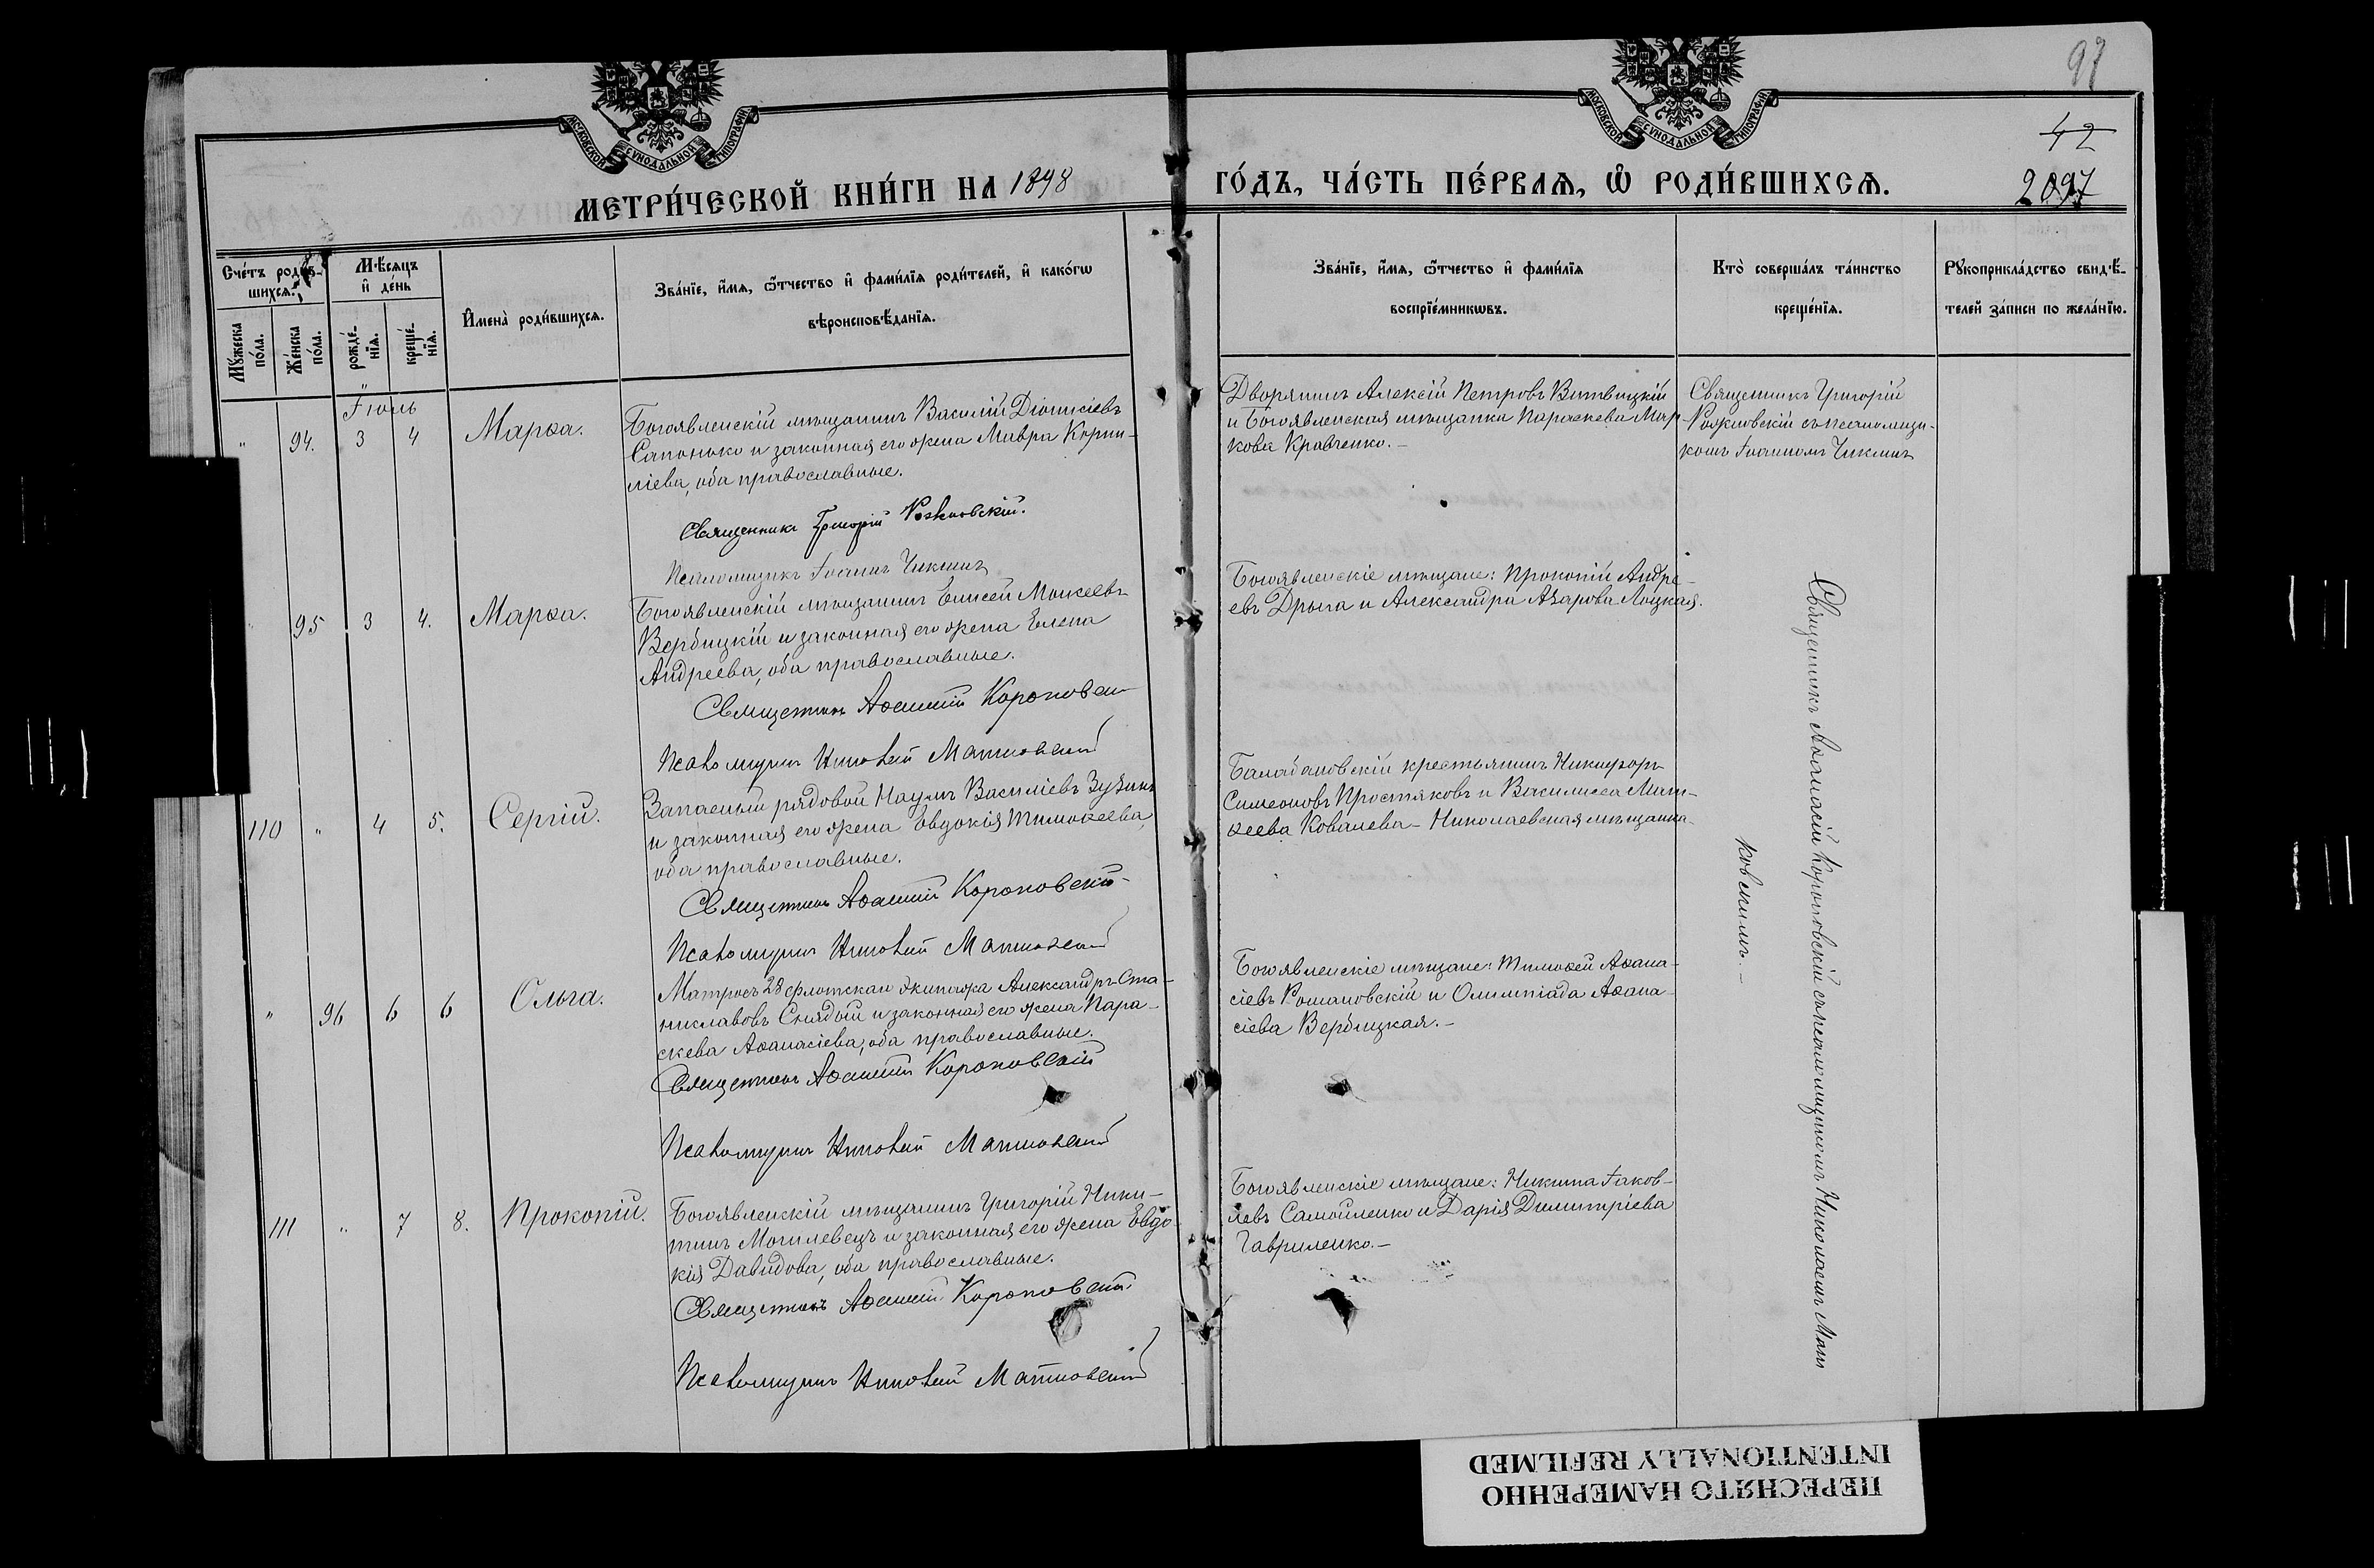 97
42
2097
МОСКОВСКОЙ СУНОДАЛЬНОЙ ТИПОГРАФІИ
МОСКОВСКОЙ СУНОДАЛЬНОЙ ТИПОГРАФІИ
МЕТРИ́ЧЕСКОЙ КНИ́ГИ НА 1898 ГО́ДЪ, ЧА́СТЬ ПЕ́РВАѦ, Ѡ РОДИ́ВШИХСѦ.
Сче́тъ роди́вшихсѧ.
Мѣ́сѧцъ и҆ де́нь
Мꙋ́жеска по́ла.
Же́нска по́ла.
рожде́нїѧ.
креще́нїѧ.
И҆мена̀ роди́вшихсѧ.
Зва́нїе, и҆́мѧ, ѻ҆́тчество и҆ фами́лїѧ роди́телей, и҆ како́гѡ
вѣроисповѣ́данїѧ.
Зва́нїе, и҆́мѧ, ѻ҆́тчество и҆ фами́лїѧ
воспрїе́мникѡвъ.
Кто̀ соверша́лъ та́инство
креще́нїѧ.
Рꙋкоприкла́дство свидѣ́-
телей за́писи по жела́нїю.
Іюль
" 94. 3 4 Марѳа.
Богоявленскій мѣщанинъ Василій Діонисіевъ
Сапонько и законная его жена Мавра Корни-
ліева, оба православные.
Священникъ Григорій Рожновскій.
Псаломщикъ Іоаннъ Чикминъ
Дворянинъ Алексій Петровъ Витвицкій
и Богоявленская мѣщанка Параскева Мар-
кова Кравченко.-
Священникъ Григорій
Рожновскій съ псаломщи-
комъ Іоанномъ Чикминъ
95 3 4. Марѳа.
Богоявленскій мѣщанинъ Елисей Моисеевъ
Вербицкій и законная его жена Елена
Андреева, оба православные.
Священникъ Аѳанасій Короповскій
Псаломщикъ Николай Матковскій
Богоявленскіе мѣщане: Прокопій Андре-
евъ Дрыга и Александра Азарова Лоцкая.
110 " 4 5. Сергій.
Запасный рядовой Наумъ Василіевъ Зузинъ
и законная его жена Евдокія Тимоѳеева,
оба православные.
Священникъ Аѳанасій Короповскій
Псаломщикъ Николай Матковскій
Балабановскій крестьянинъ Никифоръ
Симеоновъ Простяковъ и Василисса Мат-
ѳеева Ковалева - Николаевская мѣщанка
" 96 6 6 Ольга.
Матросъ 28 флотскаго экипажа Александръ Ста-
ниславовъ Снядый и законная его жена Пара-
скева Аѳанасіева, оба православные.
Священникъ Аѳанасій Короповскій
Псаломщикъ Николай Матковскій
Богоявленскіе мѣщане: Тимоѳей Аѳана-
сіевъ Романовскій и Олимпіада Аѳана-
сіева Вербицкая.-
111 " 7 8. Прокопій.
Богоявленскій мѣщанинъ Григорій Ники-
тинъ Могилевецъ и законная его жена Евдо-
кія Давидова, оба православные.
Священникъ Аѳанасій Короповскій
Псаломщикъ Николай Матковскій
Богоявленскіе мѣщане: Никита Іаков-
левъ Самойленко и Дарія Димитріева
Гавриленко.-
Священникъ Аѳанасій Короповскій съ псаломщикомъ Николаемъ Мат-
ковскимъ.-
ПЕРЕСНЯТО НАМЕРЕННО
INTENTIONALLY REFILMED